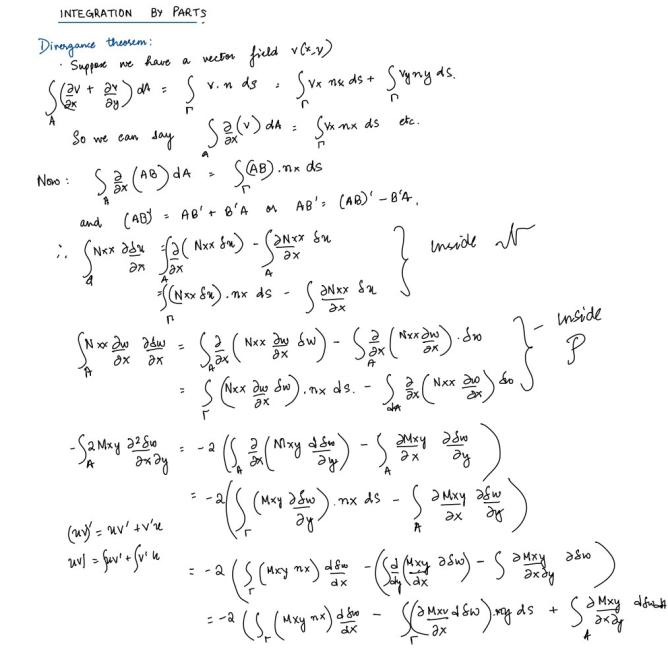 INTEGRATION BY PARTS
Divergance theorem:
· Suppose we have a vector field v(x,y)
∫_A (∂v/∂x + ∂v/∂y) dA = ∫_Γ v.n ds = ∫_Γ vx nx ds + ∫_Γ vy ny ds.
So we can say ∫_A ∂/∂x (v) dA = ∫_Γ vx nx ds etc.
Now: ∫_A ∂/∂x (AB) dA = ∫_Γ (AB).nx ds
and (AB)' = AB' + B'A or AB' = (AB)' - B'A.
∴ ∫_A Nxx ∂δu/∂x = ∫_A ∂/∂x (Nxx δu) - ∫_A ∂Nxx/∂x δu } inside N
= ∫_Γ (Nxx δu).nx ds - ∫ ∂Nxx/∂x δu
∫_A Nxx ∂w/∂x ∂δw/∂x = ∫_A ∂/∂x (Nxx ∂w/∂x δw) - ∫_A ∂/∂x (Nxx ∂w/∂x).δw } - inside P
= ∫_Γ (Nxx ∂w/∂x δw).nx ds. - ∫_dA ∂/∂x (Nxx ∂w/∂x) δw
-∫_A 2Mxy ∂²δw/∂x∂y = -2 (∫_A ∂/∂x (Mxy dδw/∂y) - ∫_A ∂Mxy/∂x ∂δw/∂y)
= -2 (∫_Γ (Mxy ∂δw/∂y).nx ds - ∫_A ∂Mxy/∂x ∂δw/∂y)
(uv)' = uv' + v'u
uv| = ∫uv' + ∫v'u
= -2 (∫_Γ (Mxy nx) dδw/dx - (∫ d/dy (Mxy/dx ∂δw) - ∫ ∂Mxy/∂x∂y ∂δw)
= -2 (∫_Γ (Mxy nx) dδw/dx - ∫_Γ (∂Mxy/∂x dδw).ny ds + ∫_A ∂Mxy/∂x∂y